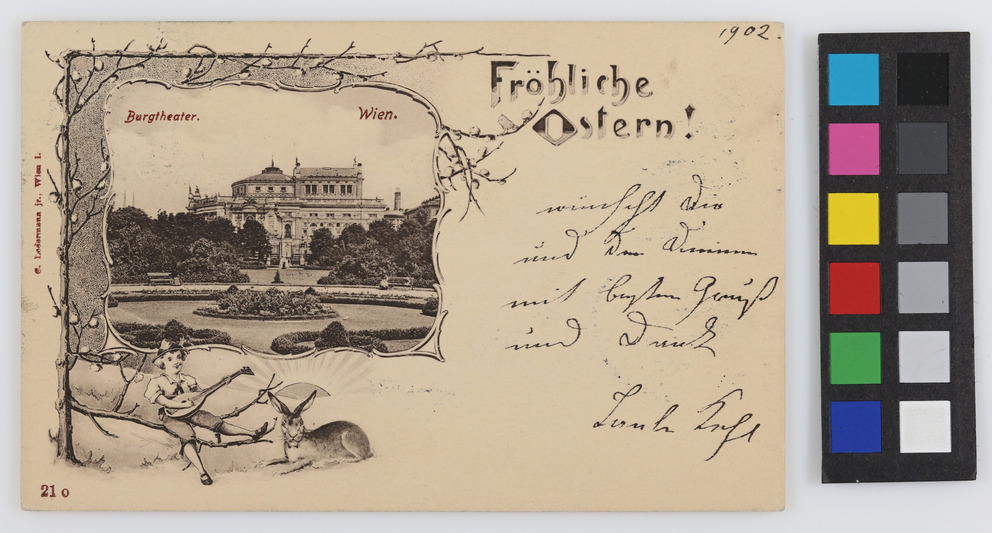 1902.
Fröhliche
Ostern!
Burgtheater.
Wien.
C. Ledermann jr., Wien I.
wünscht Dir
und den Deinen
mit besten Gruß
und Dank
21 o